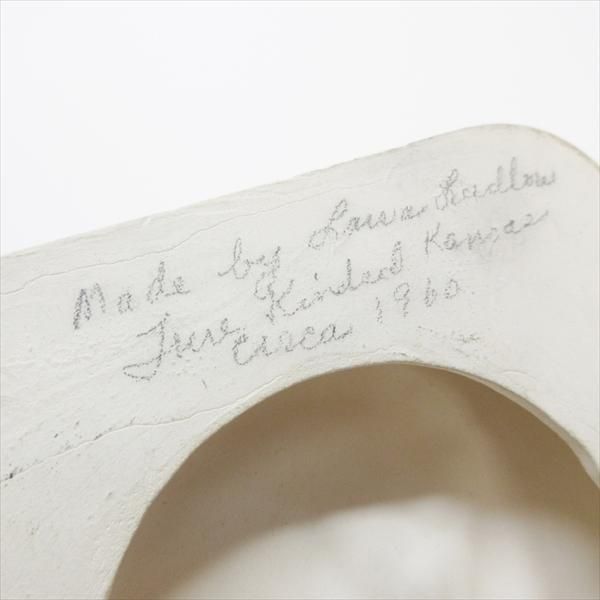 Made by Laura Ludlow
Kindred Kansas
Circa 1960